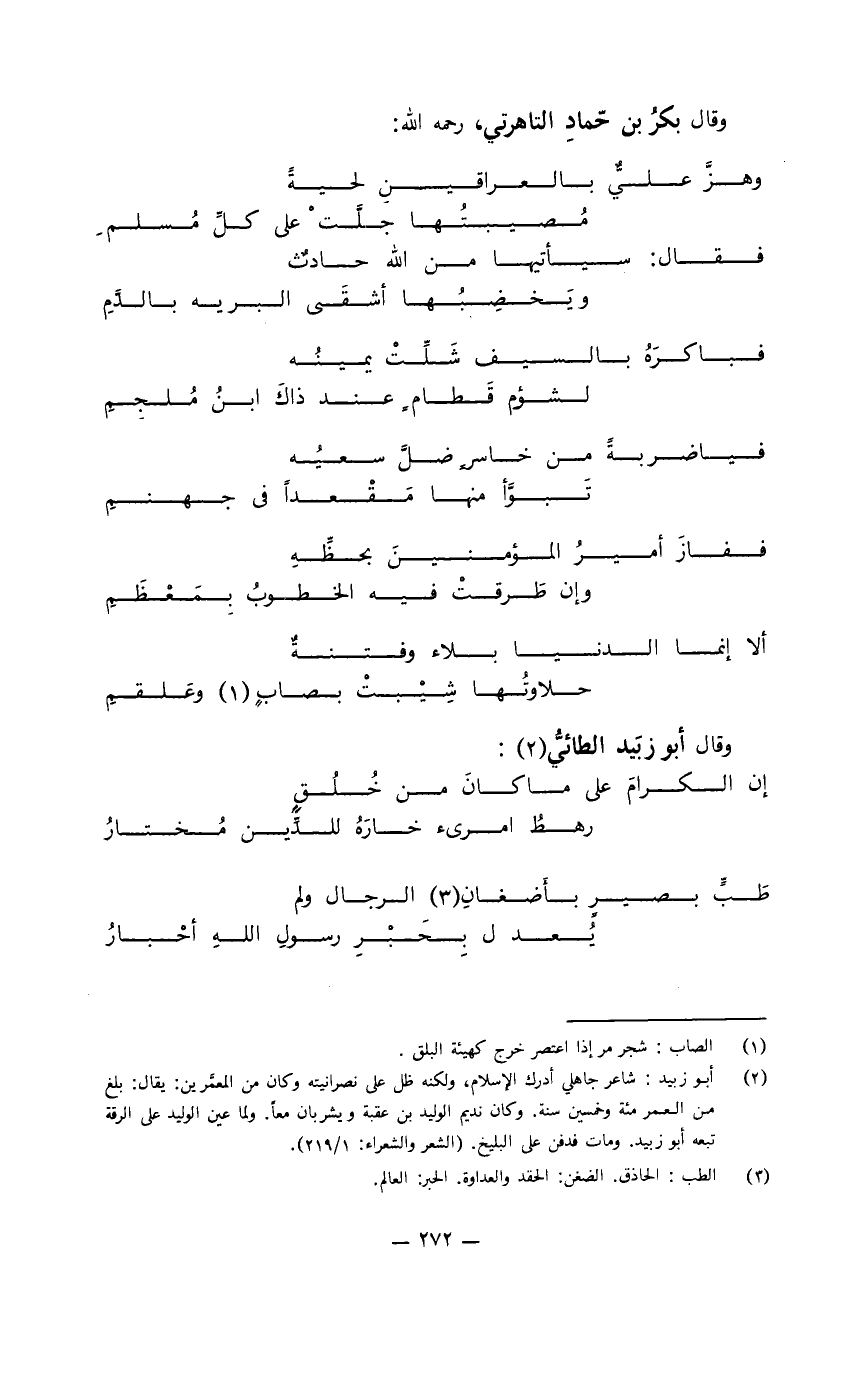 وقال بكرُ بن حمّادِ التاهرتي، رحمه الله:
وهزَّ عليٌّ بالعراقين لحيةً
مُصيبتُها جلَّتْ على كلِّ مُسلم
فقال: سيأتيها من الله حادثٌ
ويَخضِبُها أشقَى البريه بالدَّمِ
فباكرَهُ بالسيف شَلِّتْ يمينُه
لشؤم قَطامٍ عند ذاكَ ابنُ مُلجمِ
فياضربةً من خاسرٍ ضلَّ سعيُه
تَبوَّأ منها مَقْعداً فى جهنمِ
ففازَ أميرُ المؤمنينَ بحظِّهِ
وإن طَرقتْ فيه الخطوبُ بِمَعْظَمِ
ألا إنما الدنيا بلاء وفتنةٌ
حلاوتُها شِيْبتْ بصابٍ(١) وعَلقمِ
وقال أبو زبَيد الطائيُّ(٢) :
إن الكرامَ على ماكانَ من خُلُقٍ
رهطُ امرىء خارَهُ للدِّين مُختارُ
طَبٍّ بصيرٍ بأَضغانِ(٣) الرجال ولم
يُعدل بِحَبْرِ رسولِ اللهِ أحْبارُ
(١) الصاب : شجر مر إذا اعتصر خرج كهيئة البلق .
(٢) أبو زبيد : شاعر جاهلي أدرك الإسلام، ولكنه ظل على نصرانيته وكان من المعمَّرين: يقال: بلغ
من العمر مئة وخمسين سنة. وكان نديم الوليد بن عقبة ويشربان معاً. ولما عين الوليد على الرقة
تبعه أبو زبيد. ومات فدفن على البليخ. (الشعر والشعراء: ٢١٩/١).
(٣) الطب : الحاذق. الضغن: الحقد والعداوة. الحبر: العالم.
— ٢٧٢ —